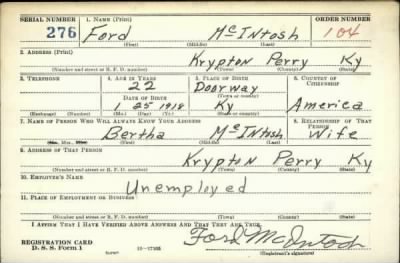 SERIAL NUMBER 1. NAME (Print) ORDER NUMBER
276 Ford McIntosh 104
(First) (Middle) (Last)
2. ADDRESS (Print)
Krypton Perry Ky
(Number and street or R. F. D. number) (Town) (County) (State)
3. TELEPHONE 4. AGE IN YEARS 5. PLACE OF BIRTH 6. COUNTRY OF CITIZENSHIP
22 Doorway
DATE OF BIRTH (Town or county)
1 25 1918 Ky America
(Exchange) (Number) (Mo.) (Day) (Yr.) (State or country)
7. NAME OF PERSON WHO WILL ALWAYS KNOW YOUR ADDRESS 8. RELATIONSHIP OF THAT PERSON
Bertha McIntosh Wife
(Mr., Mrs., Miss) (First) (Middle) (Last)
9. ADDRESS OF THAT PERSON
Krypton Perry Ky
(Number and street or R. F. D. number) (Town) (County) (State)
10. EMPLOYER'S NAME
Unemployed
11. PLACE OF EMPLOYMENT OR BUSINESS
(Number and street or R. F. D. number) (Town) (County) (State)
I AFFIRM THAT I HAVE VERIFIED ABOVE ANSWERS AND THAT THEY ARE TRUE.
REGISTRATION CARD
D. S. S. Form 1 Ford McIntosh
(Registrant's signature)